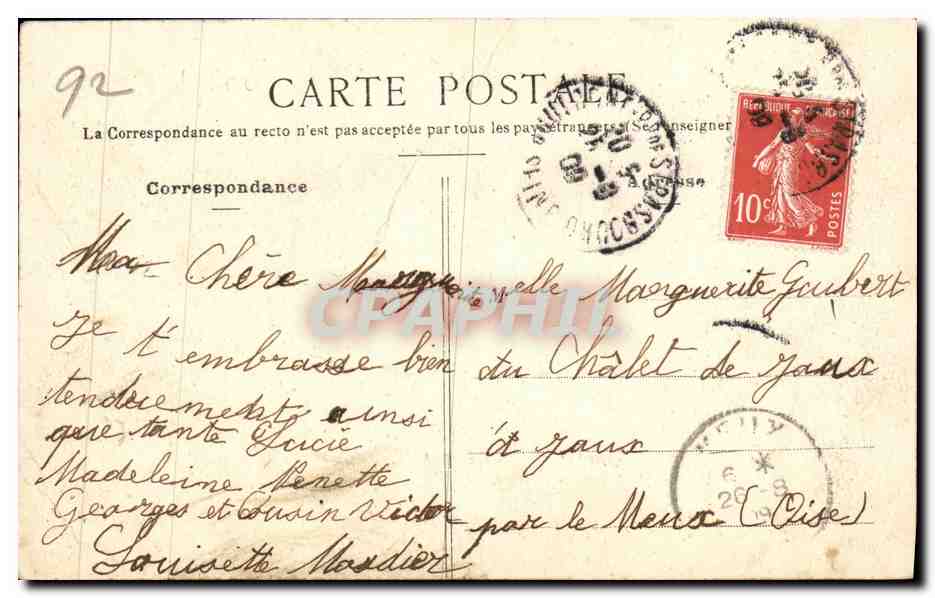 92
CARTE POSTALE
La Correspondance au recto n'est pas acceptée par tous les pays étrangers (Se renseigner
Correspondance
Adresse
RÉPUBLIQUE FRANÇAISE
10c
POSTES
Ma Chère Marguerite
Je t'embrasse bien
tendrement ainsi
que tante Lucie
Madeleine Renette
Georges et Cousin Victor
Louisette Mordier
Melle Marguerite Goubert
du Châlet de Jaux
à Jaux
par le Meux (Oise)
MEUX
6 *
26 - 8
CPAPHIL